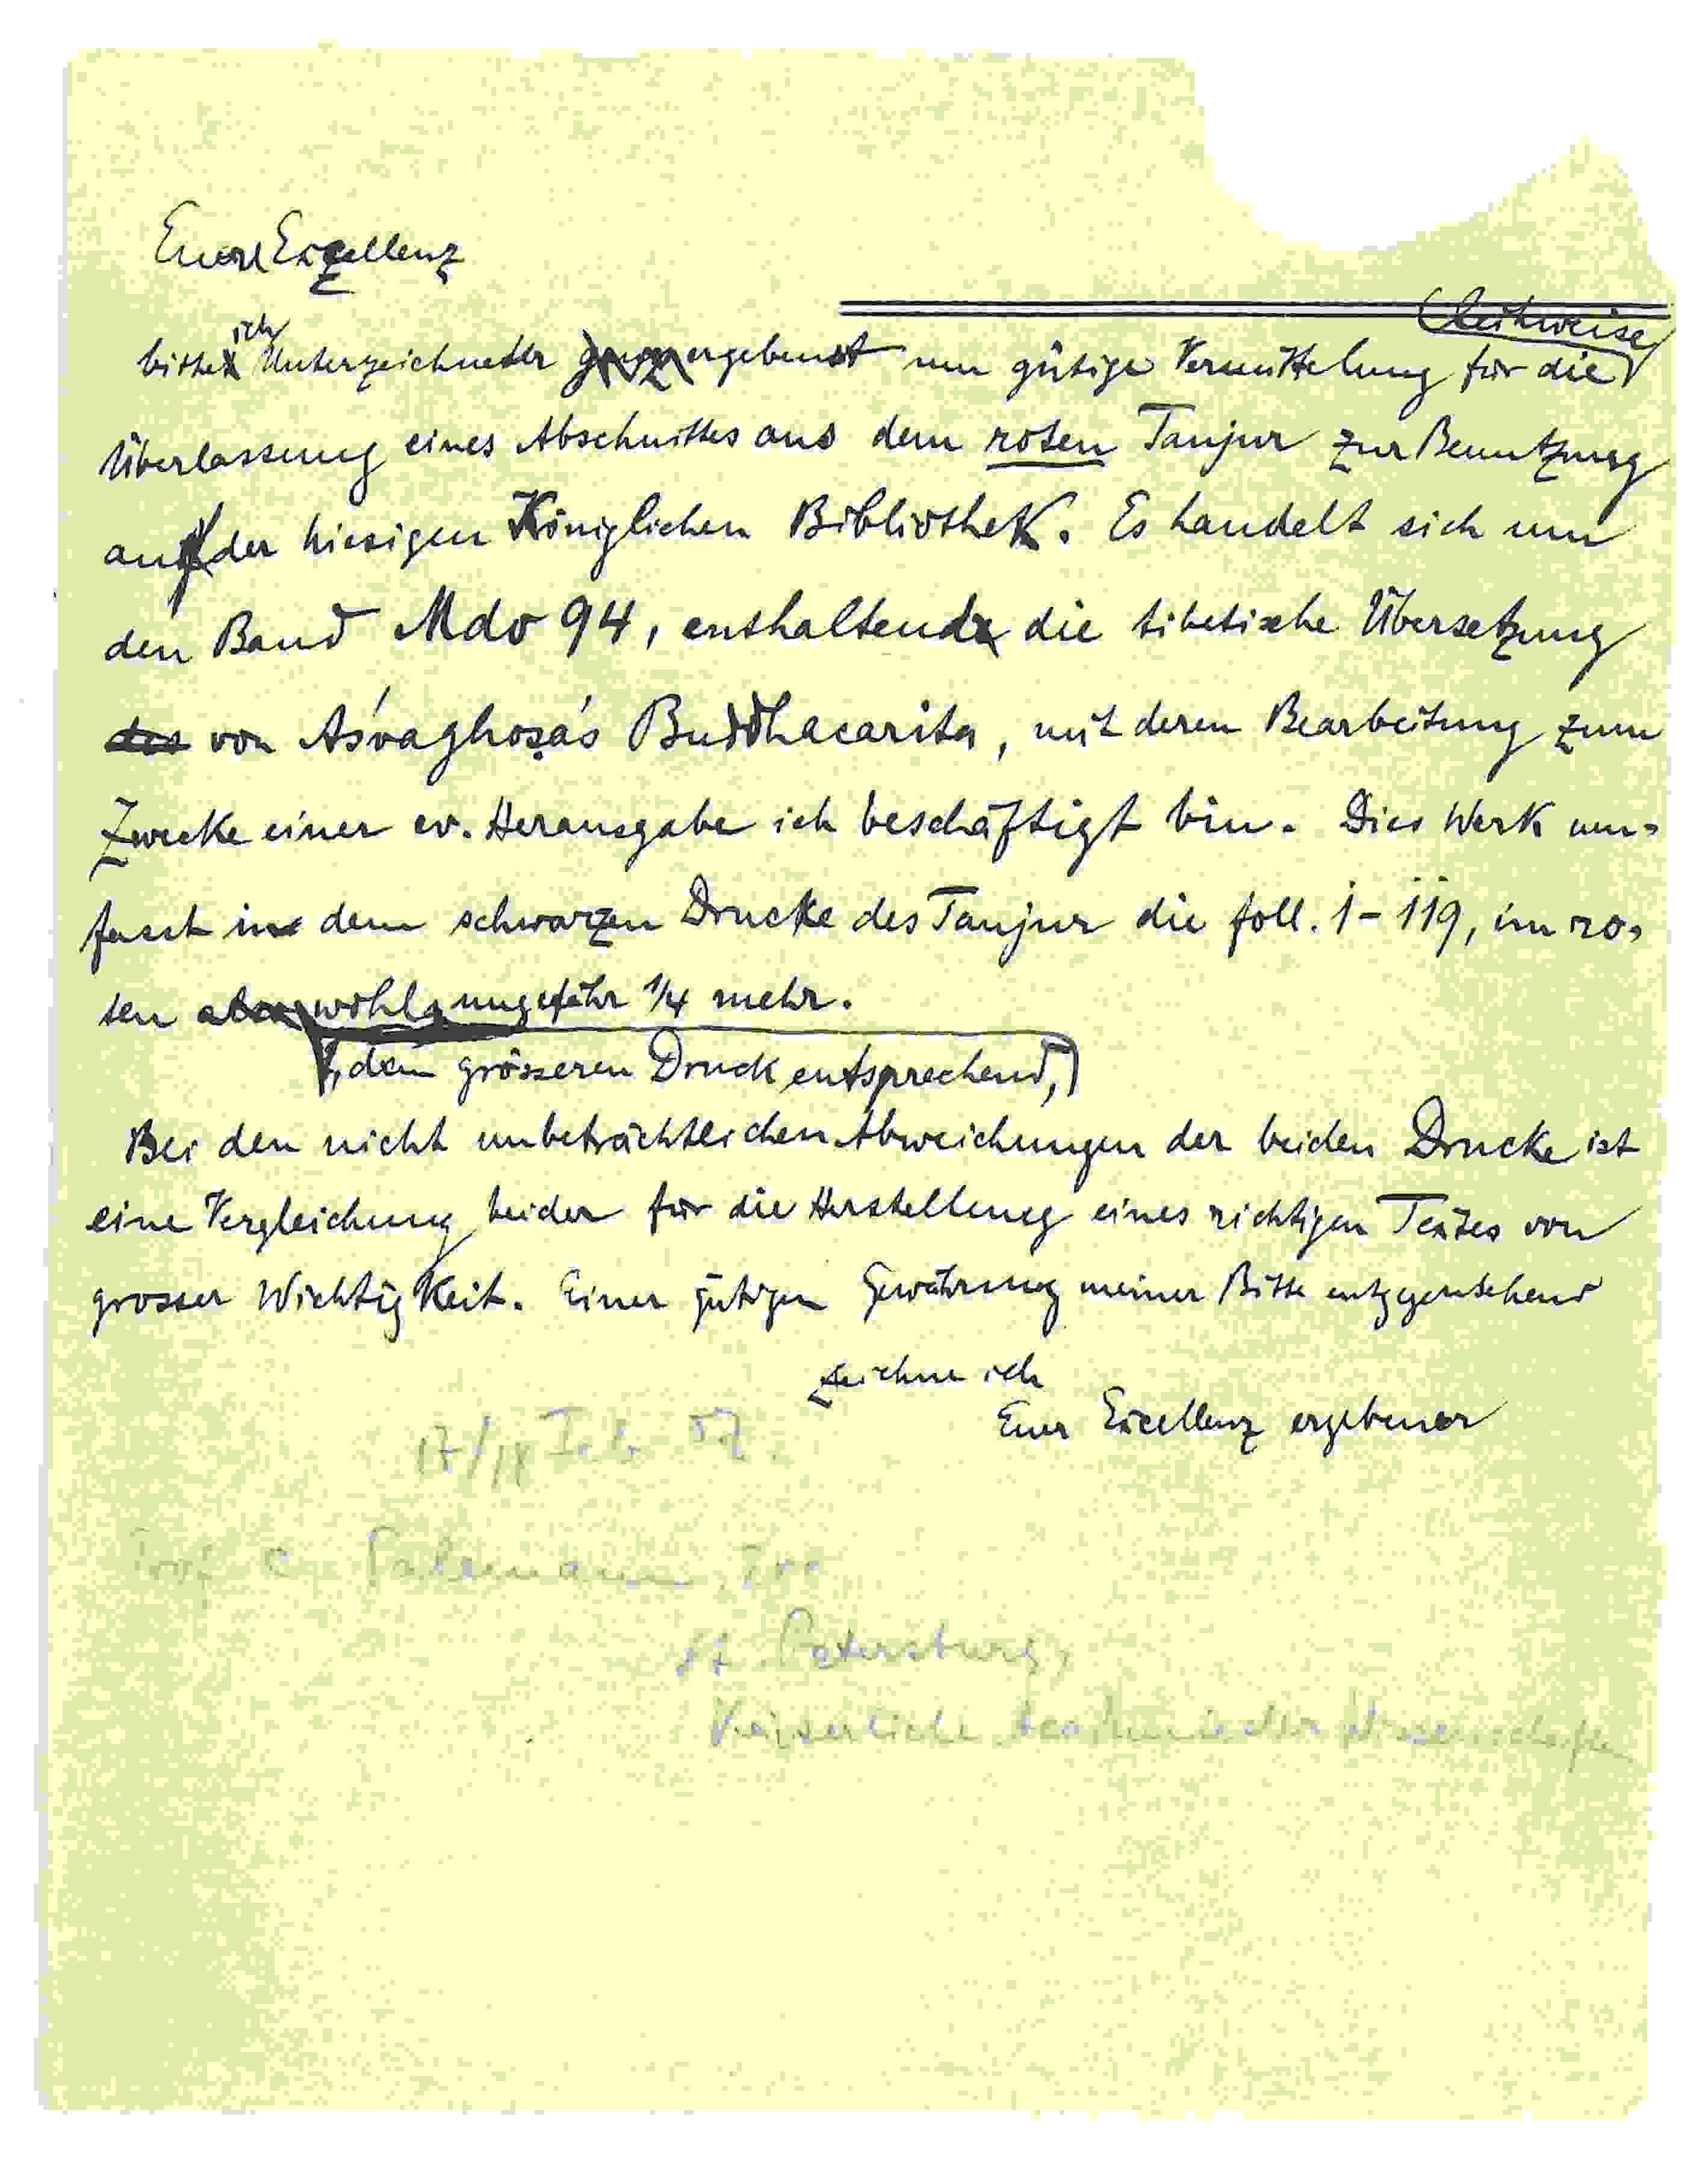 Euer Exzellenz
leihweise
bitte ich Unterzeichneter ergebenst um gütige Vermittelung für die
Überlassung eines Abschnittes aus dem roten Tanjur zur Benutzung
auf der hiesigen Königlichen Bibliothek. Es handelt sich um
den Band Mdo 94, enthaltend die tibetische Übersetzung
des von Aśvaghoṣa's Buddhacarita, mit deren Bearbeitung zum
Zwecke einer ev. Herausgabe ich beschäftigt bin. Dies Werk um-
fasst in dem schwarzen Drucke des Tanjur die foll. 1-119, im ro-
ten wohl ungefähr 1/4 mehr.
, dem grösseren Druck entsprechend,
Bei den nicht unbeträchtlichen Abweichungen der beiden Drucke ist
eine Vergleichung beider für die Herstellung eines richtigen Textes von
grosser Wichtigkeit. Einer gütigen Gewährung meiner Bitte entgegensehend
zeichne ich
Euer Excellenz ergebener
17/18 Feb
Prof C Salemann
St. Petersburg,
Kaiserliche Academie der Wissenschaften